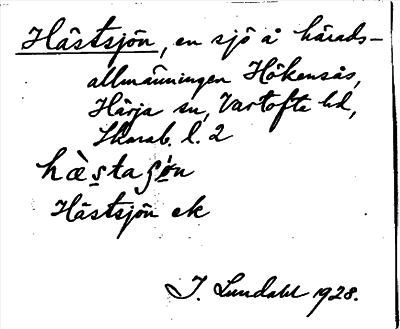 Hästsjön, en sjö å härads-
allmänningen Hökensås,
Härja sn, Vartofta hd,
Skarab. l. 2
hæ̀staʂön
Hästsjön ek
I. Lundahl 1928.